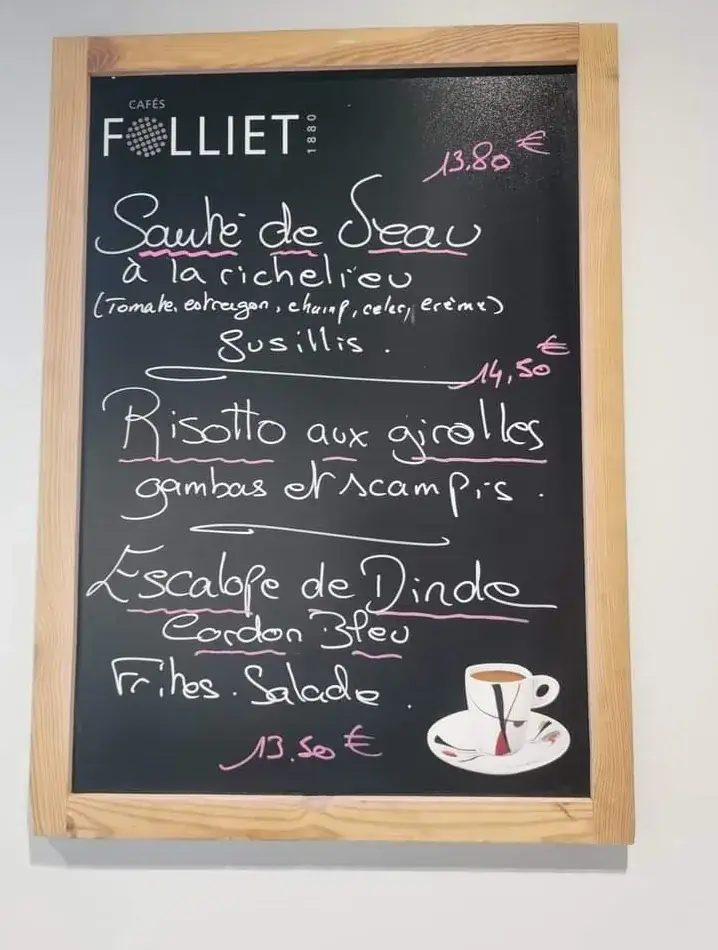 CAFÉS
FOLLIET 1880
13.80 €
Sauté de Veau
à la richelieu
(Tomate, estragon, champ, celer, crème)
fusillis.
14,50 €
Risotto aux girolles
gambas et scampis.
Escalope de Dinde
Cordon Bleu
Frites. Salade.
13.50 €